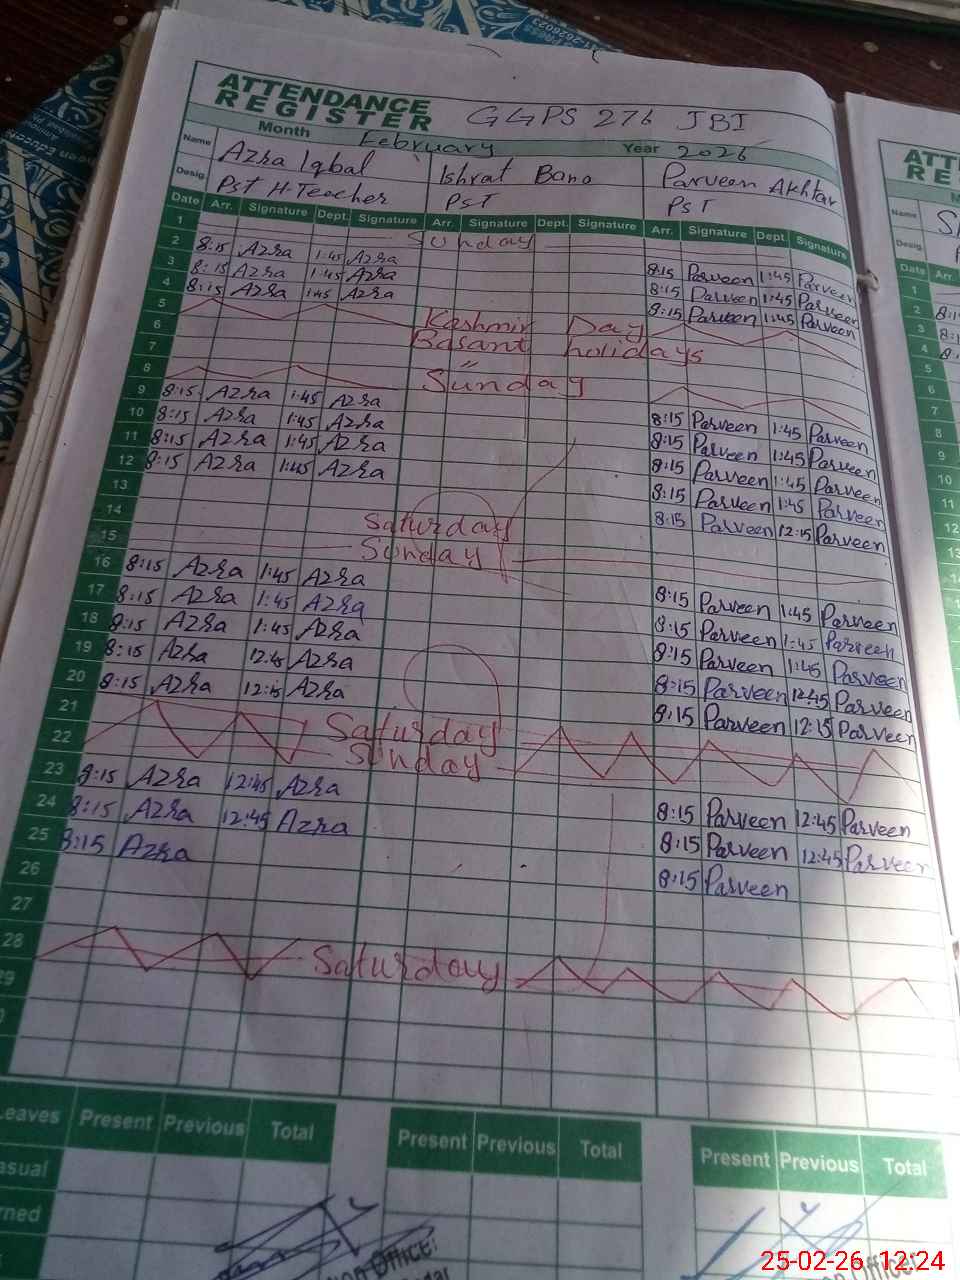 ATTENDANCE
REGISTER GGPS 276 JBI
Month February Year 2026
Name Azra Iqbal Ishrat Bano Parveen Akhtar
Desig. Pst H-Teacher PST PST
Date Arr. Signature Dept. Signature Arr. Signature Dept. Signature Arr. Signature Dept. Signature
1 Sunday
2 8:15 Azra 1:45 Azra 8:15 Parveen 1:45 Parveen
3 8:15 Azra 1:45 Azra 8:15 Parveen 1:45 Parveen
4 8:15 Azra 1:45 Azra 8:15 Parveen 1:45 Parveen
5 Kashmir Day
6 Basant holidays
7 "
8 Sunday
9 8:15 Azra 1:45 Azra 8:15 Parveen 1:45 Parveen
10 8:15 Azra 1:45 Azra 8:15 Parveen 1:45 Parveen
11 8:15 Azra 1:45 Azra 8:15 Parveen 1:45 Parveen
12 8:15 Azra 1:45 Azra 8:15 Parveen 1:45 Parveen
13 8:15 Parveen 12:15 Parveen
14 Saturday
15 Sunday
16 8:15 Azra 1:45 Azra 8:15 Parveen 1:45 Parveen
17 8:15 Azra 1:45 Azra 8:15 Parveen 1:45 Parveen
18 8:15 Azra 1:45 Azra 8:15 Parveen 1:45 Parveen
19 8:15 Azra 12:45 Azra 8:15 Parveen 12:45 Parveen
20 8:15 Azra 12:15 Azra 8:15 Parveen 12:15 Parveen
21 Saturday
22 Sunday
23 8:15 Azra 12:45 Azra 8:15 Parveen 12:45 Parveen
24 8:15 Azra 12:45 Azra 8:15 Parveen 12:45 Parveen
25 8:15 Azra 8:15 Parveen
26
27
28 Saturday
29
Leaves Present Previous Total Present Previous Total Present Previous Total
ATT
RE
Name
Desig.
Date Arr
1
2
3
4
5
6
7
8
9
10
11
12
13
25-02-26 12:24